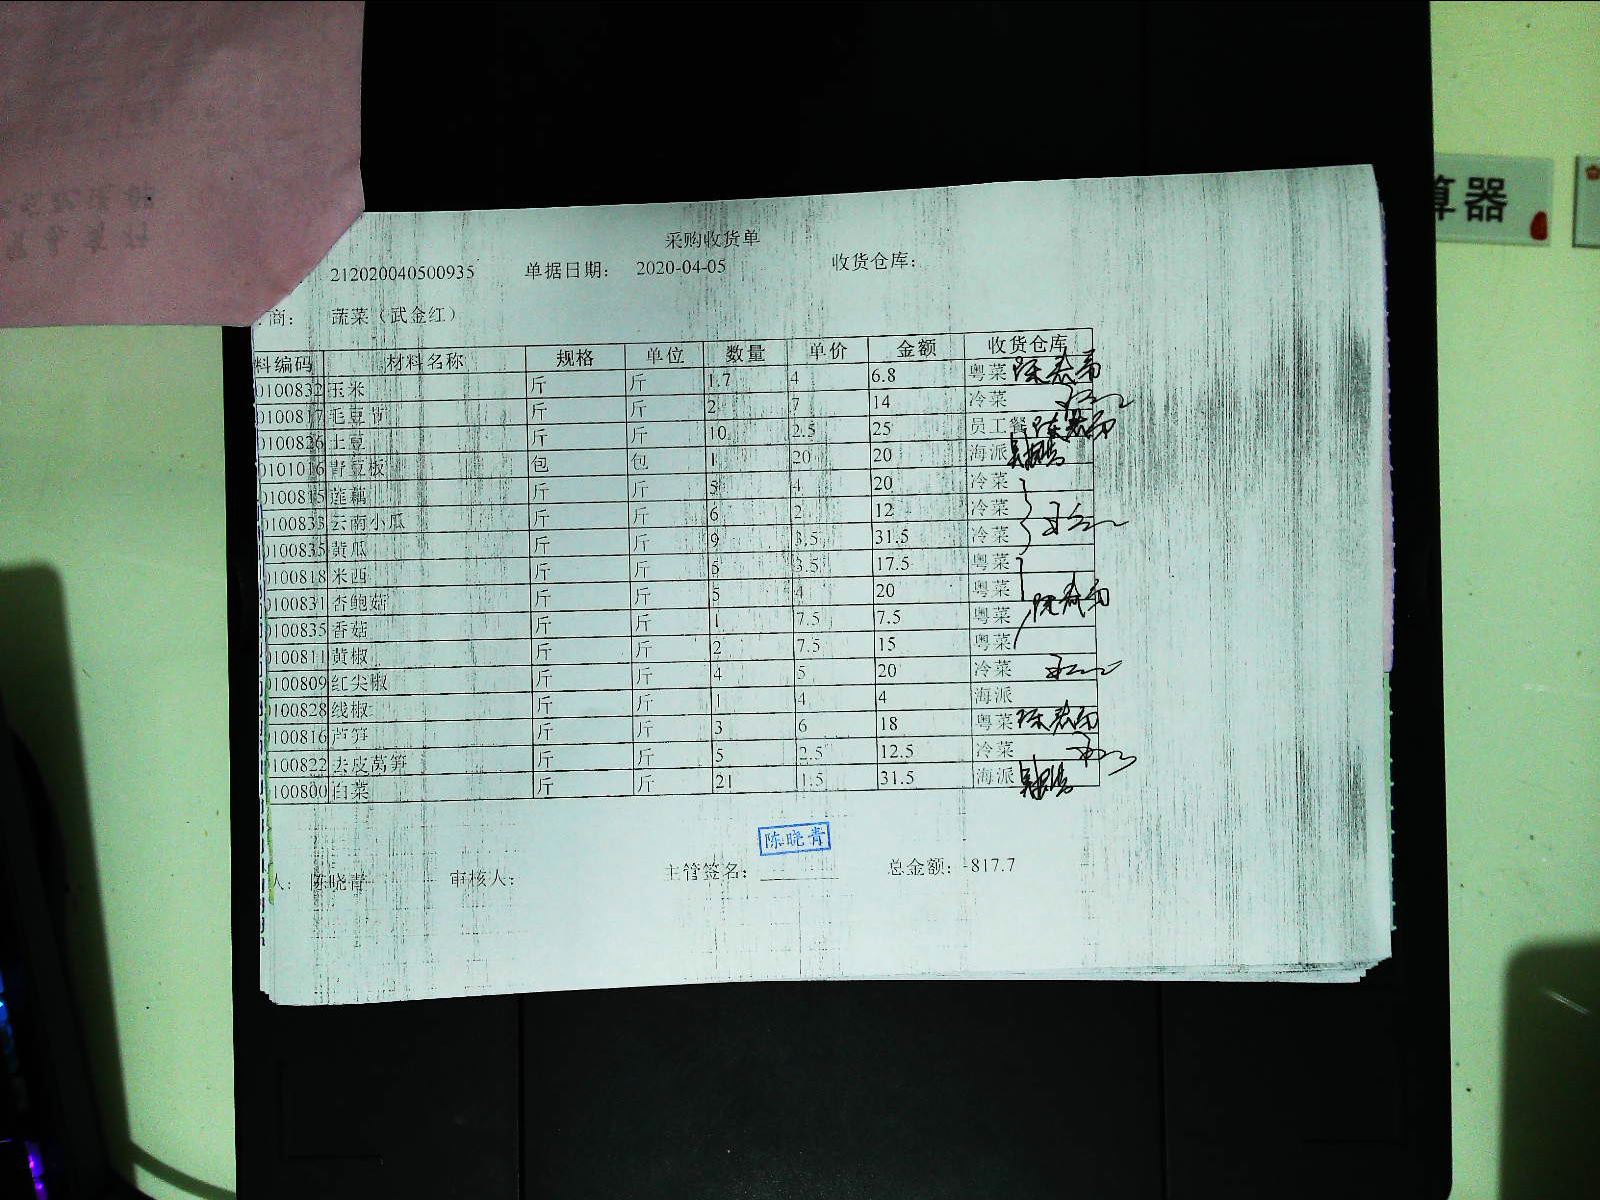 算器
采购收货单
212020040500935 单据日期： 2020-04-05 收货仓库：
商： 蔬菜（武金红）
料编码 材料名称 规格 单位 数量 单价 金额 收货仓库
0100832 玉米 斤 斤 1.7 4 6.8 粤菜
0100817 毛豆节 斤 斤 2 7 14 冷菜
0100826 土豆 斤 斤 10 2.5 25 员工餐
0101016 青豆板 包 包 1 20 20 海派
0100815 莲藕 斤 斤 5 4 20 冷菜
0100833 云南小瓜 斤 斤 6 2 12 冷菜
0100835 黄瓜 斤 斤 9 3.5 31.5 冷菜
0100818 米西 斤 斤 5 3.5 17.5 粤菜
0100831 杏鲍菇 斤 斤 5 4 20 粤菜
0100835 香菇 斤 斤 1 7.5 7.5 粤菜
0100811 黄椒 斤 斤 2 7.5 15 粤菜
0100809 红尖椒 斤 斤 4 5 20 冷菜
0100828 线椒 斤 斤 1 4 4 海派
0100816 芦笋 斤 斤 3 6 18 粤菜
0100822 去皮莴笋 斤 斤 5 2.5 12.5 冷菜
0100800 白菜 斤 斤 21 1.5 31.5 海派
陈晓青
人： 陈晓青 审核人： 主管签名： 总金额： 817.7